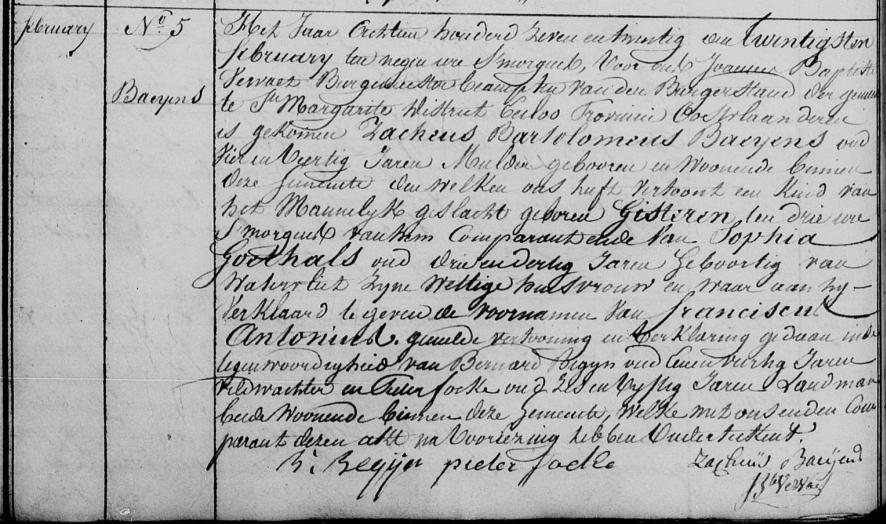 february
No 5
Baeyens
Het Jaar Achtien honderd Zeven en twintig den twintigsten
february ten negen ure Smorgens, Voor ons Joannes Baptiste
Vervaet Burgemeester beampten van den Burgerstand der gemeen
te Ste Margarite district Eecloo Provincie Oostvlaanderen
is gekomen Zacheus Bartolomeus Baeyens oud
Vier en Veertig Jaren Mulder gebooren en Woonende binnen
deze Gemeente den welken ons heeft Vertoont een Kind van
het Mannelyk geslacht geboren Gisteren ten drie ure
Smorgens van hem Comparant ende Van Sophia
Goethals oud drie en dertig Jaren Geboortig van
Watervliet Zyne Wettige huisvrouw en waar aan hy
Verklaard te geven de voornamen Van franciscus
Antonius. gemelde vertooning en Verklaring gedaan in de
tegenwoordigheid van Bernard Begyn oud Eenen Veertig Jaren
Veldwachter en Pieter focke oud Zes en Vyftig Jaren Landman
beide Woonende binnen deze Gemeente, Welke met ons en den Com
parant dezen akt na Voorlezing hebben Onderteekent.
B. Begyn pieter focke Zacheus Baeyens